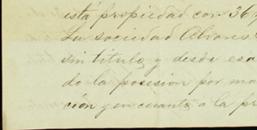 esta propiedad con 36
La sociedad Alvares
sin titulo, y desde esa
do la posesion por ma
ción y en cuanto á la pr